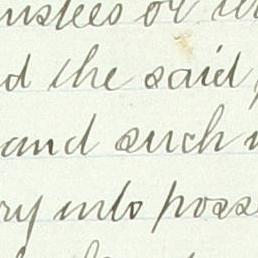 trustees or
d the said
and such
ry into poss